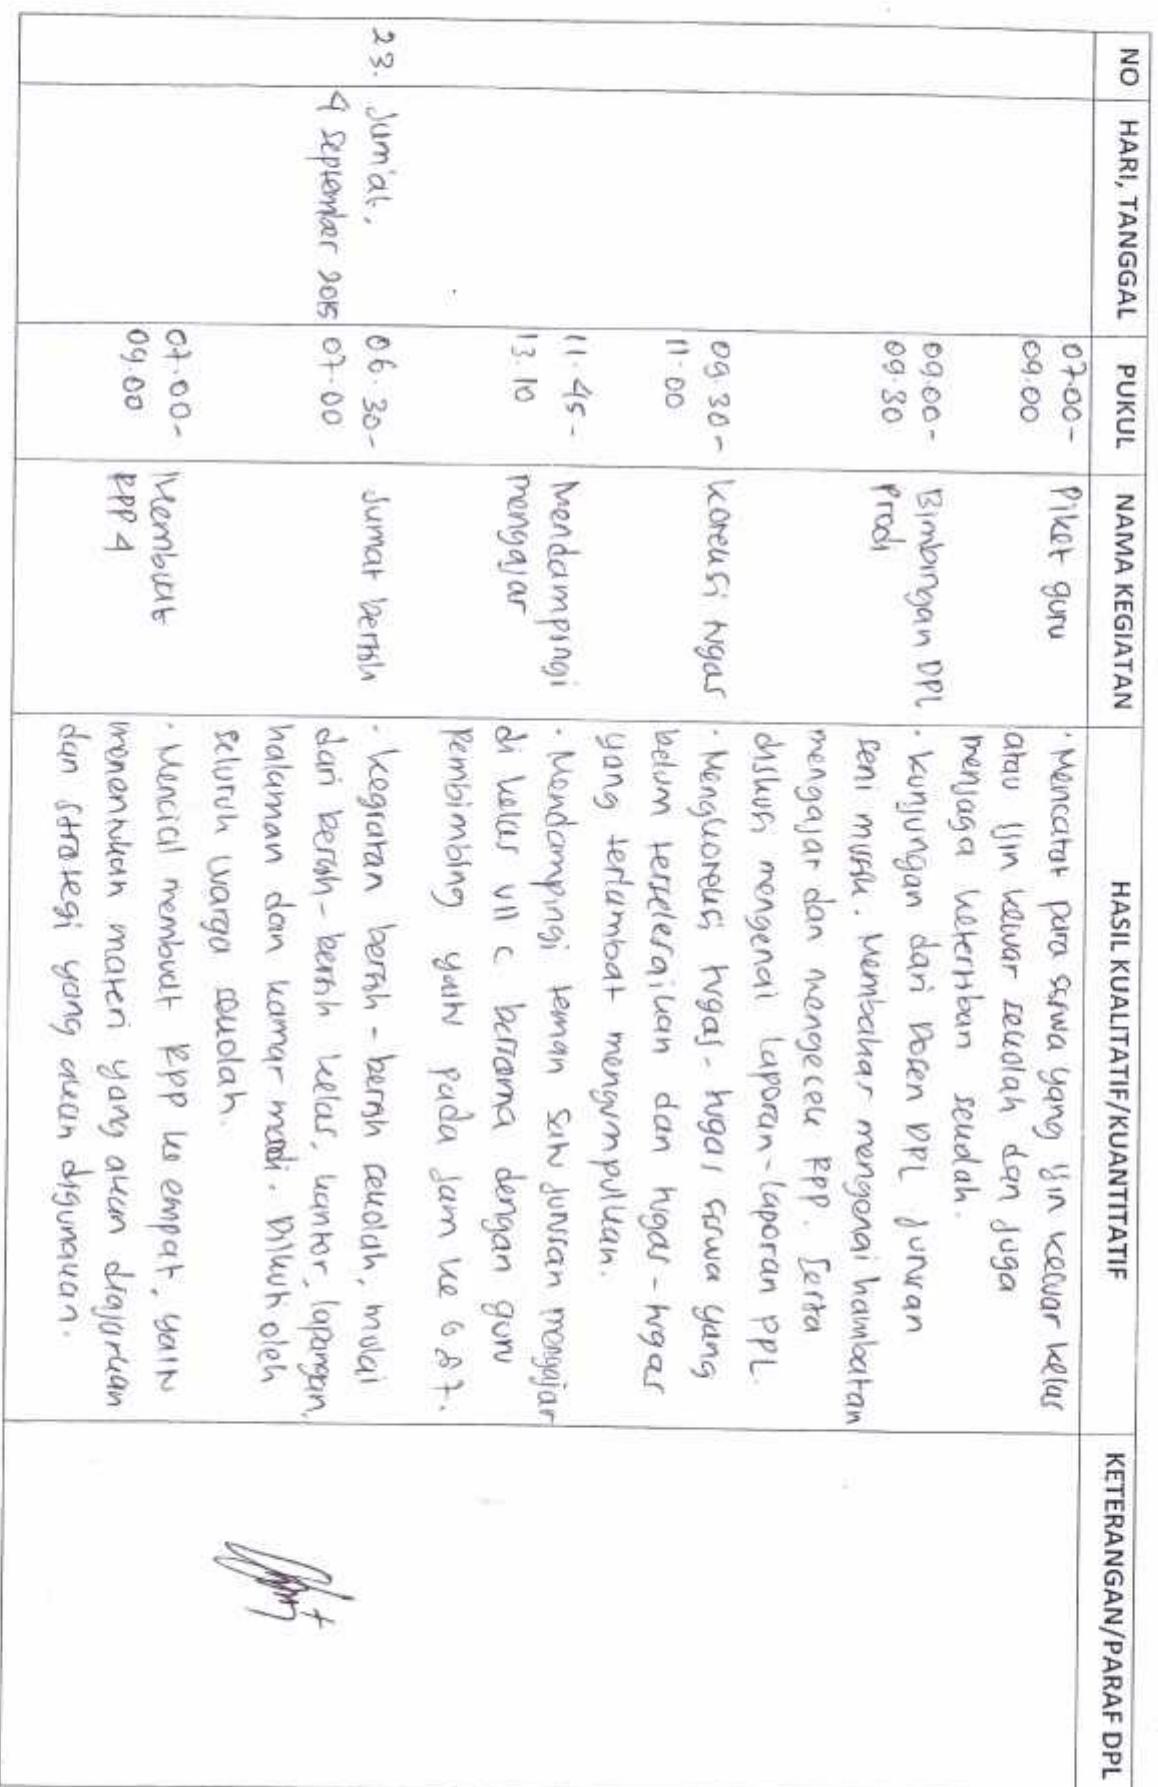 NO HARI, TANGGAL PUKUL NAMA KEGIATAN HASIL KUALITATIF/KUANTITATIF KETERANGAN/PARAF DPL
07.00- Piket guru · Mencatat para siswa yang ijin keluar kelas
09.00 atau ijin keluar sekolah dan juga
menjaga ketertiban sekolah.
09.00- Bimbingan DPL · Kunjungan dari Dosen DPL jurusan
09.30 Prodi seni musik. Membahas mengenai hambatan
mengajar dan mengecek RPP. Serta
diskusi mengenai laporan-laporan PPL.
09.30- Koreksi tugas · Mengkoreksi tugas-tugas siswa yang
11.00 belum terselesaikan dan tugas-tugas
yang terlambat mengumpulkan.
11.45- Mendampingi · Mendampingi teman satu jurusan mengajar
13.10 mengajar di kelas VII C bersama dengan guru
pembimbing yaitu pada jam ke 6 & 7.
23. Jum'at, 06.30- Jumat bersih · Kegiatan bersih-bersih sekolah, mulai
4 September 2015 07.00 dari bersih-bersih kelas, kantor, lapangan,
halaman dan kamar mandi. Diikuti oleh
seluruh warga sekolah.
07.00- Membuat · Mencicil membuat RPP ke empat, yaitu
09.00 RPP 4 menentukan materi yang akan diajarkan
dan strategi yang akan digunakan.